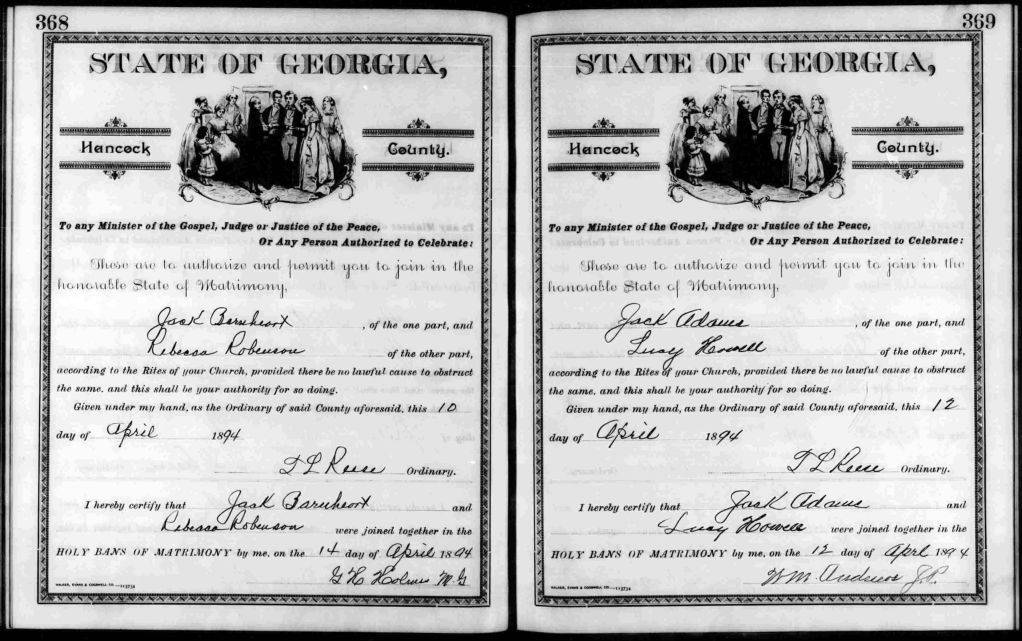 368
STATE OF GEORGIA,
Hancock County.
To any Minister of the Gospel, Judge or Justice of the Peace,
Or Any Person Authorized to Celebrate:
These are to authorize and permit you to join in the
honorable State of Matrimony,
Jack Barnheart, of the one part, and
Rebecca Robenson of the other part,
according to the Rites of your Church, provided there be no lawful cause to obstruct
the same, and this shall be your authority for so doing.
Given under my hand, as the Ordinary of said County aforesaid, this 10
day of April 1894
T L Reese Ordinary.
I hereby certify that Jack Barnheart and
Rebecca Robenson were joined together in the
HOLY BANS OF MATRIMONY by me, on the 14 day of April 1894
G H Holmes M G
WALKER, EVANS & COGSWELL CO.
369
STATE OF GEORGIA,
Hancock County.
To any Minister of the Gospel, Judge or Justice of the Peace,
Or Any Person Authorized to Celebrate:
These are to authorize and permit you to join in the
honorable State of Matrimony,
Jack Adams, of the one part, and
Lucy Howell of the other part,
according to the Rites of your Church, provided there be no lawful cause to obstruct
the same, and this shall be your authority for so doing.
Given under my hand, as the Ordinary of said County aforesaid, this 12
day of April 1894
T L Reese Ordinary.
I hereby certify that Jack Adams and
Lucy Howell were joined together in the
HOLY BANS OF MATRIMONY by me, on the 12 day of Aprl 1894
Wm Andrews J.P.
WALKER, EVANS & COGSWELL CO.